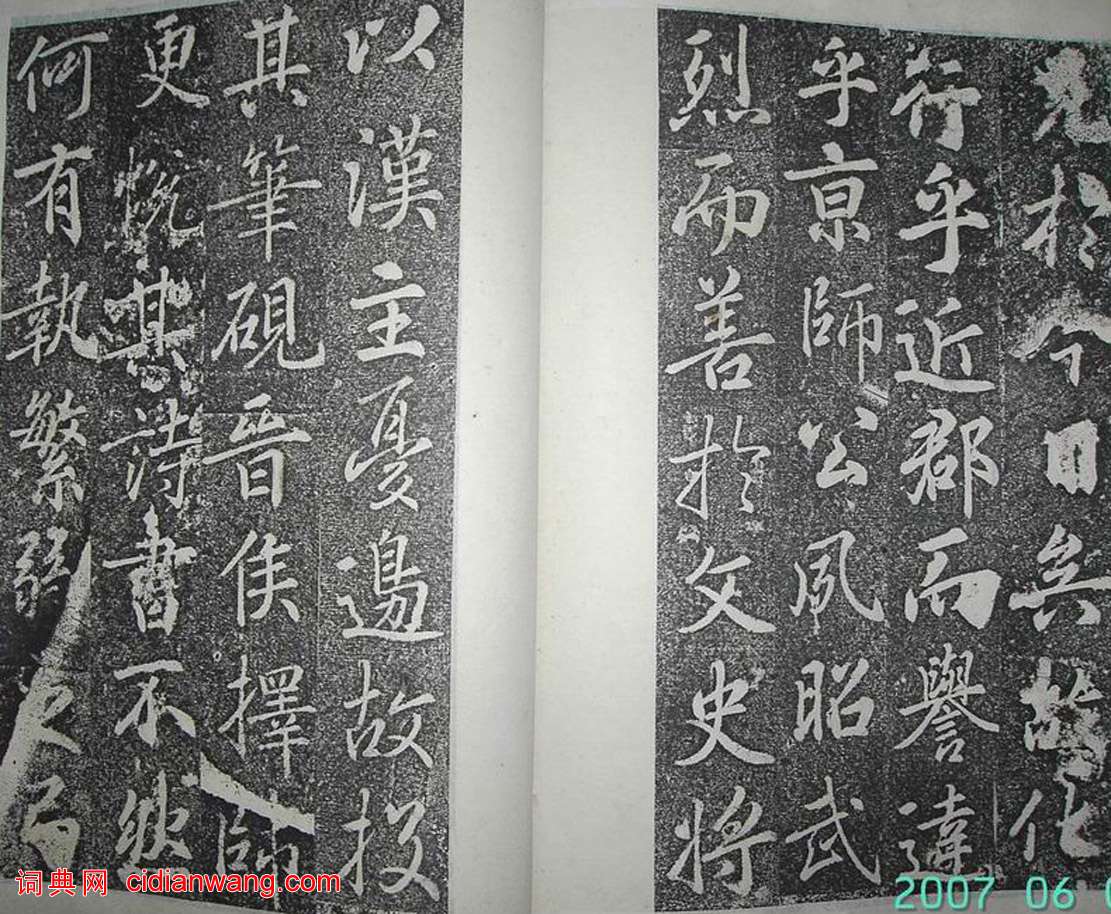 見於今日矣故化
行乎近郡而譽違
乎京師公夙昭武
烈而善於文史將
以漢主憂邊故投
其筆硯晉侯擇帥
更悦其詩書不然
何有執繁弱之弓
词典网 cidianwang.com
2007 06 0